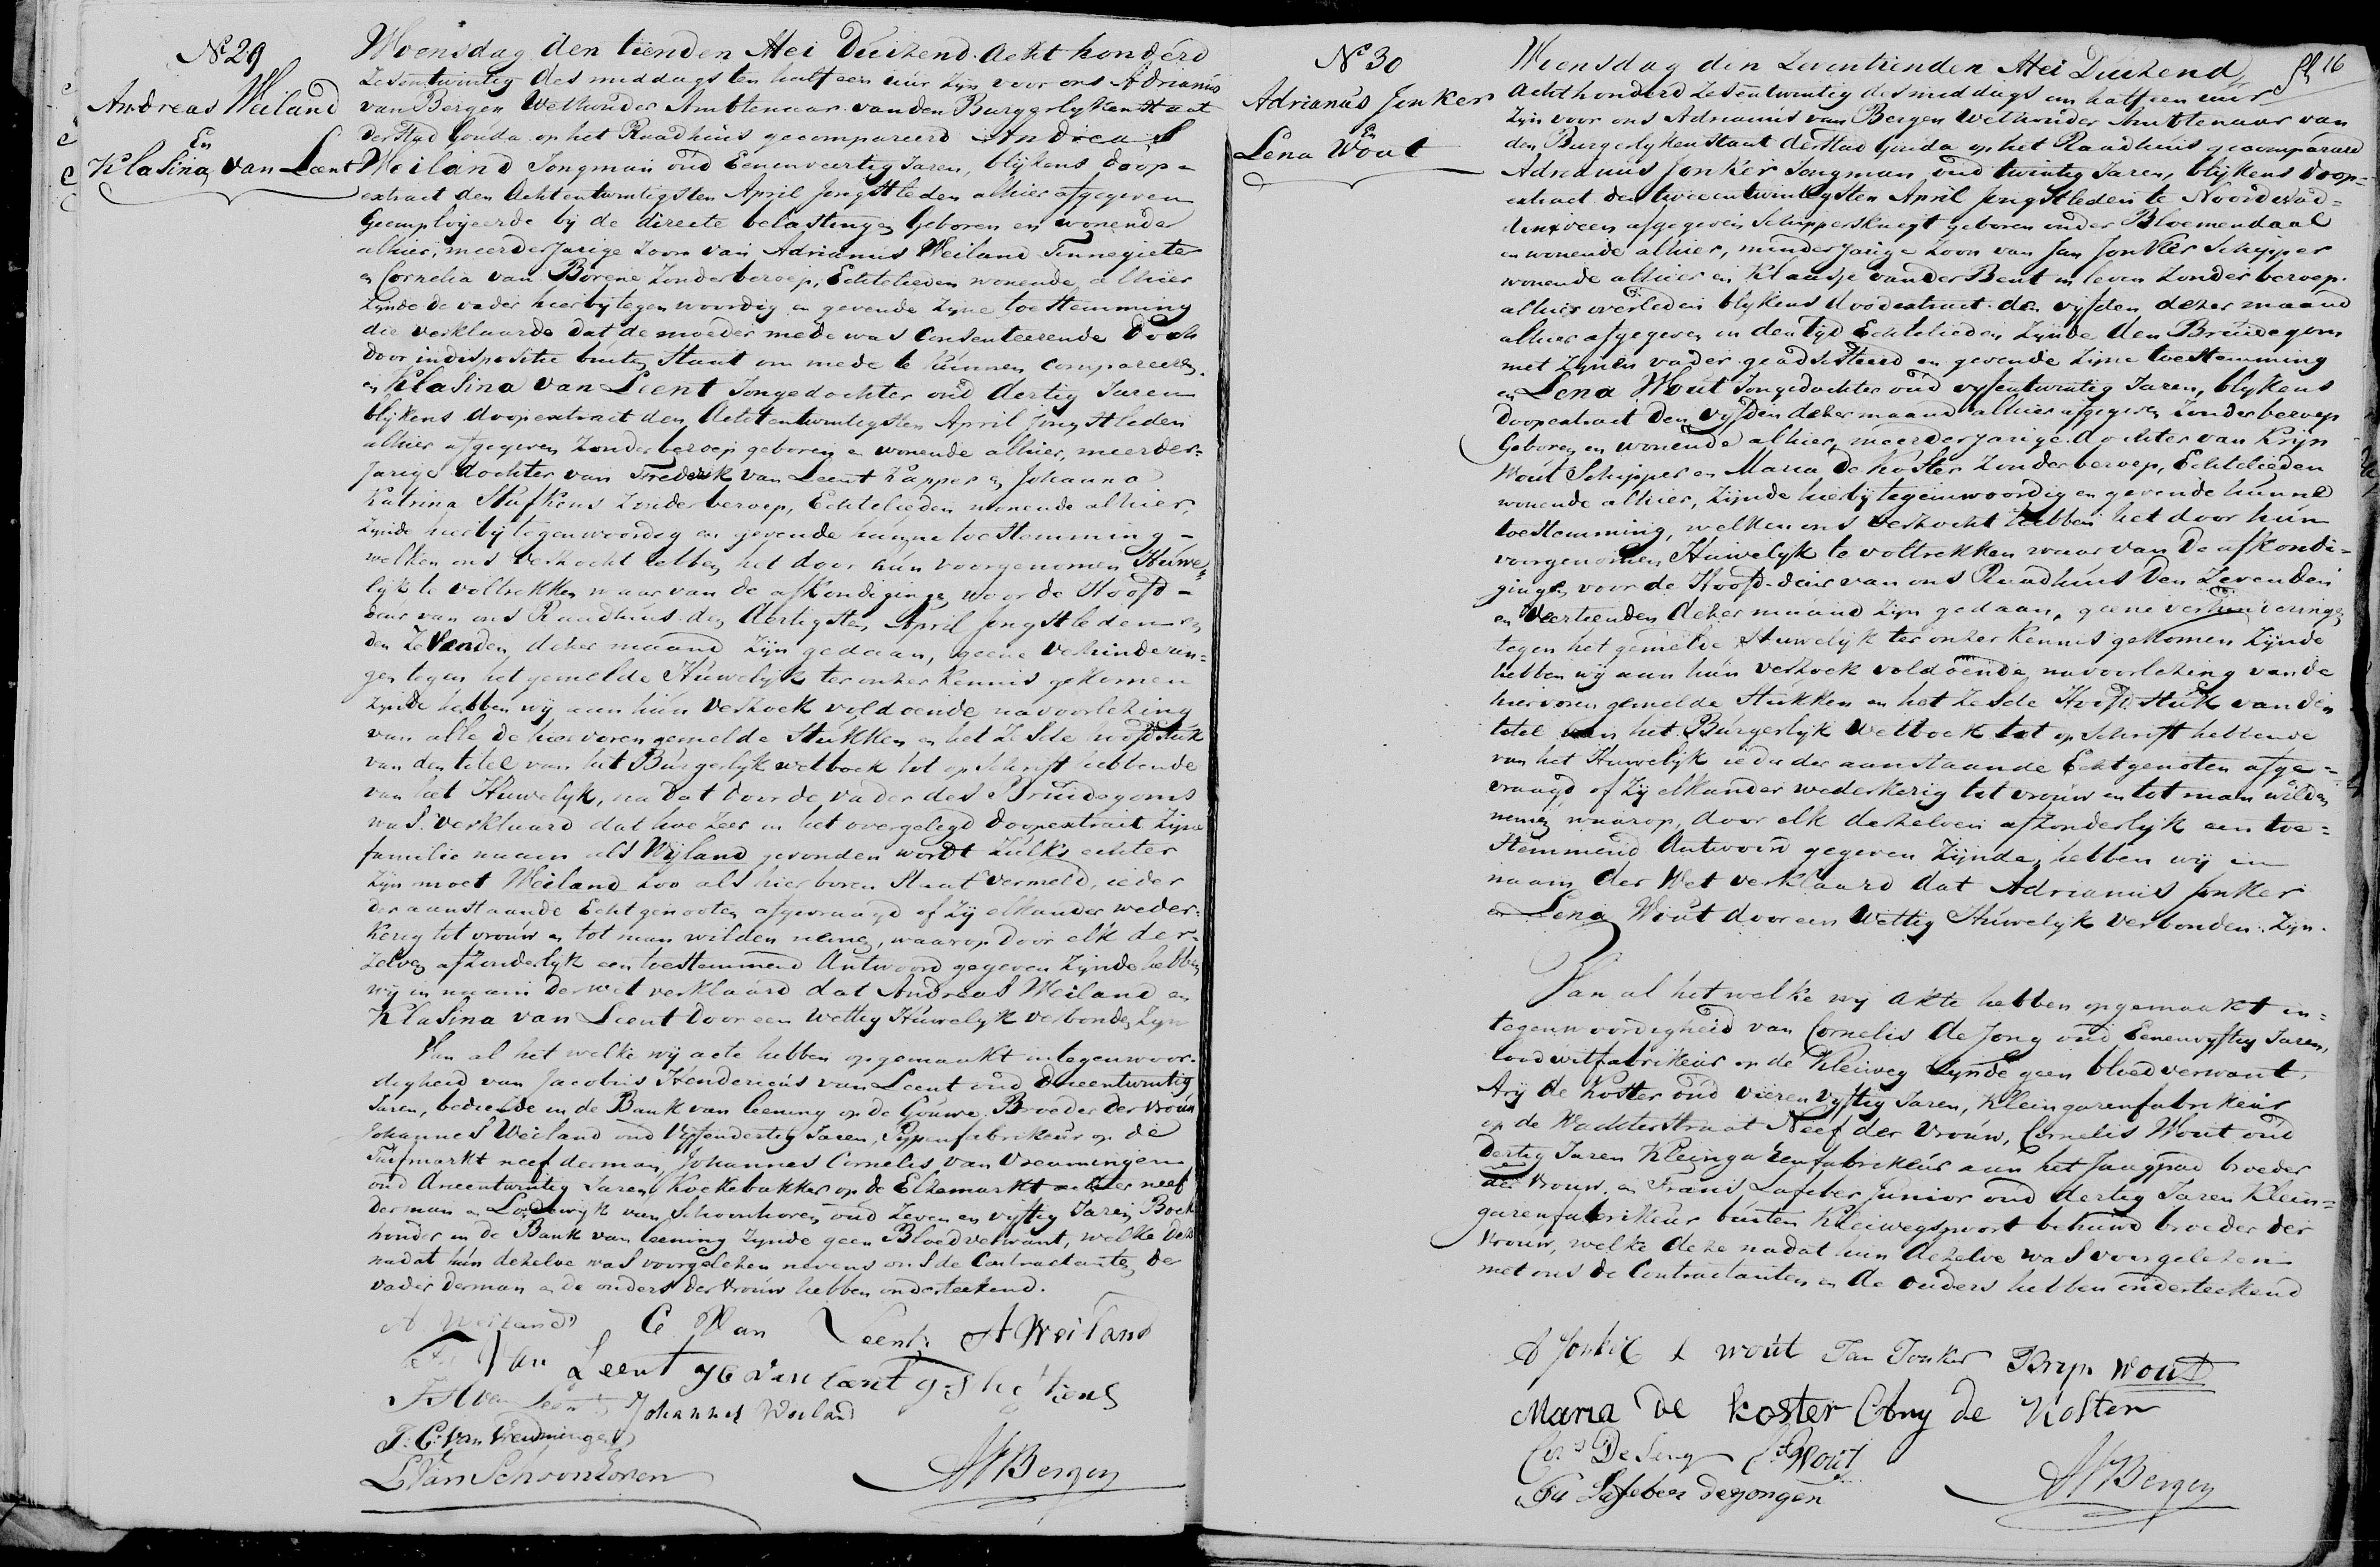 No 29
Andreas Weiland
En
Klasina van Leent
Woensdag den tienden Mei Duizend Acht honderd
Zesentwintig des middags ten half een uur zyn voor ons Adrianus
van Bergen Wethouder Ambtenaar van den Burgerlyken Staat
der Stad Gouda op het Raadhuis gecompareerd Andreas
Weiland Jongman oud Eenenveertig Jaren, blijkens doop-
extract den Achtentwintigsten April Jongstleden alhier afgegeven
Geemployeerde bij de directe belastingen Geboren en wonende
alhier, meerderjarige zoon van Adrianus Weiland Tinnegieter
en Cornelia van Borene Zonder beroep, Echtelieden wonende alhier
zynde de vader hierbij tegenwoordig en gevende zyne toestemming
die verklaarde dat de moeder mede was Consenteerende doch
door indispositie buiten Staat om mede te kunnen compareeren
en Klasina van Leent Jongedochter oud dertig Jaren
blijkens doopextract den Achtentwintigsten April Jongstleden
alhier afgegeven Zonder beroep geboren en wonende alhier, meerder-
jarige dochter van Frederik van Leent Kapper en Johanna
Katrina Stufkens Zonder beroep, Echtelieden wonende alhier,
zynde hierbij tegenwoordig en gevende hunne toestemming -
welken ons verzocht hebben het door hun voorgenomen Huwe-
lijk te voltrekken waar van de afkondigingen voor de Hoofd-
deur van ons Raadhuis den dertigsten April Jongstleden en
den Zevenden dezer maand zijn gedaan, geene verhinderin-
gen tegen het gemelde Huwelijk ter onzer kennis gekomen
zynde hebben wij aan hun verzoek voldoende na voorlezing
van alle de hiervoren gemelde Stukken en het Zesde hoofdstuk
van den titel van het Burgerlyk wetboek tot opschrift hebbende
van het Huwelyk, na dat door de vader des Bruidegoms
was verklaard dat hoe zeer in het overgelegd doopextract zyne
familie naam als Wijland gevonden wordt zulks echter
zyn moet Weiland zoo als hier boven Staat vermeld, ieder
der aanstaande Echtgenooten afgevraagd of zij elkander weder-
kerig tot vrouw en tot man wilden nemen, waarop door elk der-
zelven afzonderlyk een toestemmend Antwoord gegeven zynde hebben
wij in naam der wet verklaard dat Andreas Weiland en
Klasina van Leent door een wettig Huwelyk verbonden zyn
Van al het welke wij acte hebben opgemaakt in tegenwoor-
digheid van Jacobus Hendericus van Leent oud drieentwintig
Jaren, bediende in de Bank van leening op de Gouwe Broeder der vrouw
Johannes Weiland oud Vijfendertig Jaren, Pypenfabrikeur op de
Turfmarkt neef der man, Johannes Cornelis van Vreumingen
oud drieentwintig Jaren Koekebakker op de neef
der man en Lodewijk van Schoonhoven oud Zeven en vijftig Jaren Boek
houder in de Bank van leening zynde geen Bloedverwant, welke deze
nadat hun dezelve was voorgelezen nevens ons de Contractanten, de
vader der man en de ouders der vrouw hebben onderteekend.
A Weiland C Van Leent A Weiland
Van Leent
Johannes Weiland
J: C: van Vreumingen
L Van Schoonhoven
AVBergen
No 30
Adrianus Jonker
En
Lena Wout
16
Woensdag den Zeventienden Mei Duizend
Achthonderd Zesentwintig des middags om half een uur
Zyn voor ons Adrianus van Bergen Wethouder Ambtenaar van
den Burgerlyken Staat der Stad Gouda op het Raadhuis gecompareerd
Adrianus Jonker Jongman oud twintig Jaren, blijkens doop-
extract den tweeentwintigsten April Jongstleden te Noordwad-
dinxveen afgegeven Schippersknegt geboren onder Bloemendaal
en wonende alhier, minderjarige zoon van Jan Jonker Schipper
wonende alhier en Klaasje van der Bent in leven zonder beroep
alhier overleden blijkens doodextract den vijfden dezer maand
alhier afgegeven in den tyd Echtelieden, zynde den Bruidegom
met zynen vader geadsisteerd en gevende zyne toestemming
en Lena Wout Jongedochter oud vyfentwintig Jaren, blijkens
doopextract den vijfden dezer maand alhier afgegeven zonder beroep
Geboren en wonende alhier, meerderjarige dochter van Krijn
Wout Schipper en Maria de Koster Zonder beroep, Echtelieden
wonende alhier, zijnde hierbij tegenwoordig en gevende hunne
toestemming, welken ons verzocht hebben het door hun
voorgenomen Huwelijk te voltrekken waar van de afkondi-
gingen voor de Hoofd-deur van ons Raadhuis den Zevenden
en Veertienden dezer maand zijn gedaan, geene verhinderingen
tegen het gemelde Huwelyk ter onzer kennis gekomen zijnde
hebben wij aan hun verzoek voldoende na voorlezing van de
hiervoren gemelde Stukken en het Zesde Hoofdstuk van den
titel van het Burgerlyk Wetboek tot opschrift hebbende
van het Huwelyk ieder der aanstaande Echtgenoten afge-
vraagd of zij elkander wederkerig tot vrouw en tot man wilden
nemen waarop, door elk derzelven afzonderlyk een toe-
stemmend Antwoord gegeven zijnde, hebben wij in
naam der Wet verklaard dat Adrianus Jonker
en Lena Wout door een Wettig Huwelyk verbonden zyn.
Van al het welke wij akte hebben opgemaakt in
tegenwoordigheid van Cornelis de Jong oud Eenenvyftig Jaren,
loodwitfabrikeur op de Kleiweg zijnde geen bloedverwant,
Arij de Koster oud vierenvyftig Jaren, Kleingarenfabrikeur
op de Wachterstraat Neef der Vrouw, Cornelis Wout oud
dertig Jaren Kleingarenfabrikeur aan het Jaagpad broeder
der vrouw en Frans Lafeber Junior oud dertig Jaren Klein-
garenfabrikeur buiten Kleiwegspoort behuwd broeder der
vrouw, welke deze nadat hun dezelve was voorgelezen
met ons de Contractanten en de ouders hebben onderteekend
A Jonker L wout Jan Jonker Kryn wout
Maria de Koster Ary de Koster
Cors De Jong Cs Wout
Fs Lafeber de jongen
AVBergen